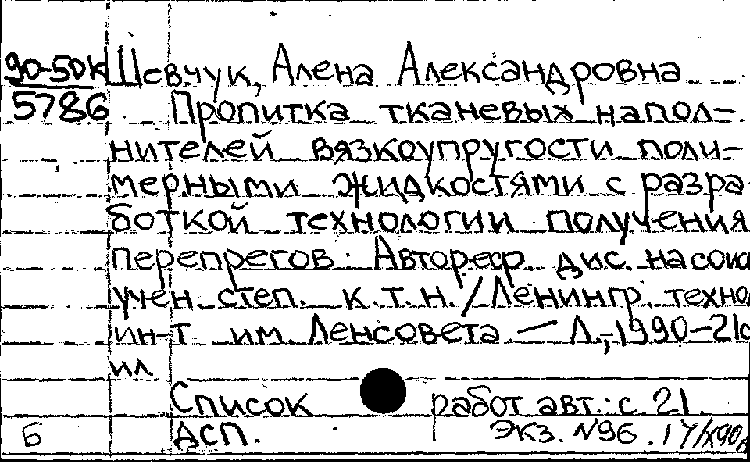 90-50к Шевчук, Алена Александровна
5786 Пропитка тканевых напол-
нителей вязкоупругости поли-
мерными жидкостями с разра
боткой технологии получения
перепрегов. Автореф. дис. на соис
учен. степ. к.т.н. / Ленингр. техно
ин-т им. Ленсовета. — Л., 1990 - 21с
ил
Список работ авт.: с. 21
Б ДСП. Экз. №96. 17/IX90